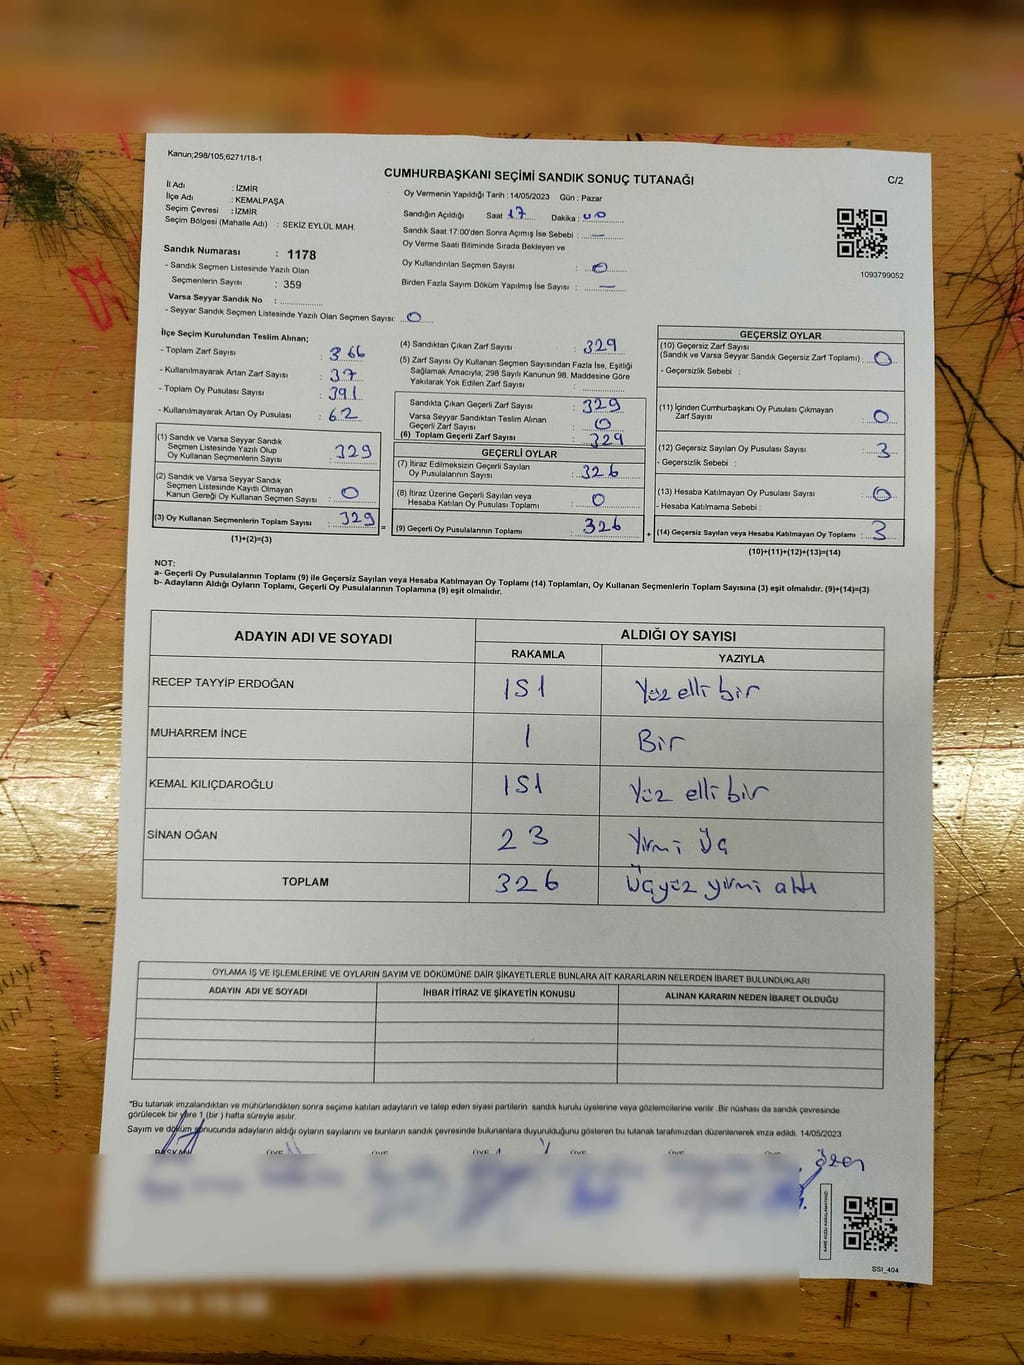 Kanun;298/105;6271/18-1
CUMHURBAŞKANI SEÇİMİ SANDIK SONUÇ TUTANAĞI
C/2
İl Adı : İZMİR
İlçe Adı : KEMALPAŞA
Seçim Çevresi : İZMİR
Seçim Bölgesi (Mahalle Adı) : SEKİZ EYLÜL MAH.
Sandık Numarası : 1178
- Sandık Seçmen Listesinde Yazılı Olan
Seçmenlerin Sayısı : 359
Varsa Seyyar Sandık No :
- Seyyar Sandık Seçmen Listesinde Yazılı Olan Seçmen Sayısı: 0
Oy Vermenin Yapıldığı Tarih : 14/05/2023 Gün : Pazar
Sandığın Açıldığı Saat 17 Dakika : 00
Sandık Saat 17:00'den Sonra Açımış İse Sebebi : —
Oy Verme Saati Bitiminde Sırada Bekleyen ve
Oy Kullandırılan Seçmen Sayısı : 0
Birden Fazla Sayım Döküm Yapılmış İse Sayısı : —
1093799052
İlçe Seçim Kurulundan Teslim Alınan;
- Toplam Zarf Sayısı : 366
- Kullanılmayarak Artan Zarf Sayısı : 37
- Toplam Oy Pusulası Sayısı : 391
- Kullanılmayarak Artan Oy Pusulası : 62
(1) Sandık ve Varsa Seyyar Sandık
Seçmen Listesinde Yazılı Olup
Oy Kullanan Seçmenlerin Sayısı : 329
(2) Sandık ve Varsa Seyyar Sandık
Seçmen Listesinde Kayıtlı Olmayan
Kanun Gereği Oy Kullanan Seçmen Sayısı : 0
(3) Oy Kullanan Seçmenlerin Toplam Sayısı : 329 =
(1)+(2)=(3)
(4) Sandıktan Çıkan Zarf Sayısı : 329
(5) Zarf Sayısı Oy Kullanan Seçmen Sayısından Fazla İse, Eşitliği
Sağlamak Amacıyla, 298 Sayılı Kanunun 98. Maddesine Göre
Yakılarak Yok Edilen Zarf Sayısı :
Sandıkta Çıkan Geçerli Zarf Sayısı : 329
Varsa Seyyar Sandıktan Teslim Alınan
Geçerli Zarf Sayısı : 0
(6) Toplam Geçerli Zarf Sayısı : 329
GEÇERLİ OYLAR
(7) İtiraz Edilmeksizin Geçerli Sayılan
Oy Pusulalarının Sayısı : 326
(8) İtiraz Üzerine Geçerli Sayılan veya
Hesaba Katılan Oy Pusulası Toplamı : 0
(9) Geçerli Oy Pusulalarının Toplamı : 326 +
GEÇERSİZ OYLAR
(10) Geçersiz Zarf Sayısı
(Sandık ve Varsa Seyyar Sandık Geçersiz Zarf Toplamı) : 0
- Geçersizlik Sebebi :
(11) İçinden Cumhurbaşkanı Oy Pusulası Çıkmayan
Zarf Sayısı : 0
(12) Geçersiz Sayılan Oy Pusulası Sayısı : 3
- Geçersizlik Sebebi :
(13) Hesaba Katılmayan Oy Pusulası Sayısı : 0
- Hesaba Katılmama Sebebi :
(14) Geçersiz Sayılan veya Hesaba Katılmayan Oy Toplamı : 3
(10)+(11)+(12)+(13)=(14)
NOT:
a- Geçerli Oy Pusulalarının Toplamı (9) ile Geçersiz Sayılan veya Hesaba Katılmayan Oy Toplamı (14) Toplamları, Oy Kullanan Seçmenlerin Toplam Sayısına (3) eşit olmalıdır. (9)+(14)=(3)
b- Adayların Aldığı Oyların Toplamı, Geçerli Oy Pusulalarının Toplamına (9) eşit olmalıdır.
ADAYIN ADI VE SOYADI ALDIĞI OY SAYISI
RAKAMLA YAZIYLA
RECEP TAYYİP ERDOĞAN 151 Yüz elli bir
MUHARREM İNCE 1 Bir
KEMAL KILIÇDAROĞLU 151 Yüz elli bir
SİNAN OĞAN 23 Yirmi Üç
TOPLAM 326 Üçyüz yirmi altı
OYLAMA İŞ VE İŞLEMLERİNE VE OYLARIN SAYIM VE DÖKÜMÜNE DAİR ŞİKAYETLERLE BUNLARA AİT KARARLARIN NELERDEN İBARET BULUNDUKLARI
ADAYIN ADI VE SOYADI İHBAR İTİRAZ VE ŞİKAYETİN KONUSU ALINAN KARARIN NEDEN İBARET OLDUĞU
*Bu tutanak imzalandıktan ve mühürlendikten sonra seçime katılan adayların ve talep eden siyasi partilerin sandık kurulu üyelerine veya gözlemcilerine verilir .Bir nüshası da sandık çevresinde
görülecek bir yere 1 (bir ) hafta süreyle asılır.
Sayım ve döküm sonucunda adayların aldığı oyların sayılarını ve bunların sandık çevresinde bulunanlara duyurulduğunu gösteren bu tutanak tarafımızdan düzenlenerek imza edildi. 14/05/2023
BAŞKAN ÜYE ÜYE ÜYE ÜYE ÜYE ÜYE
Özen
KARE KODU KARALAMAYINIZ!
SSI_404